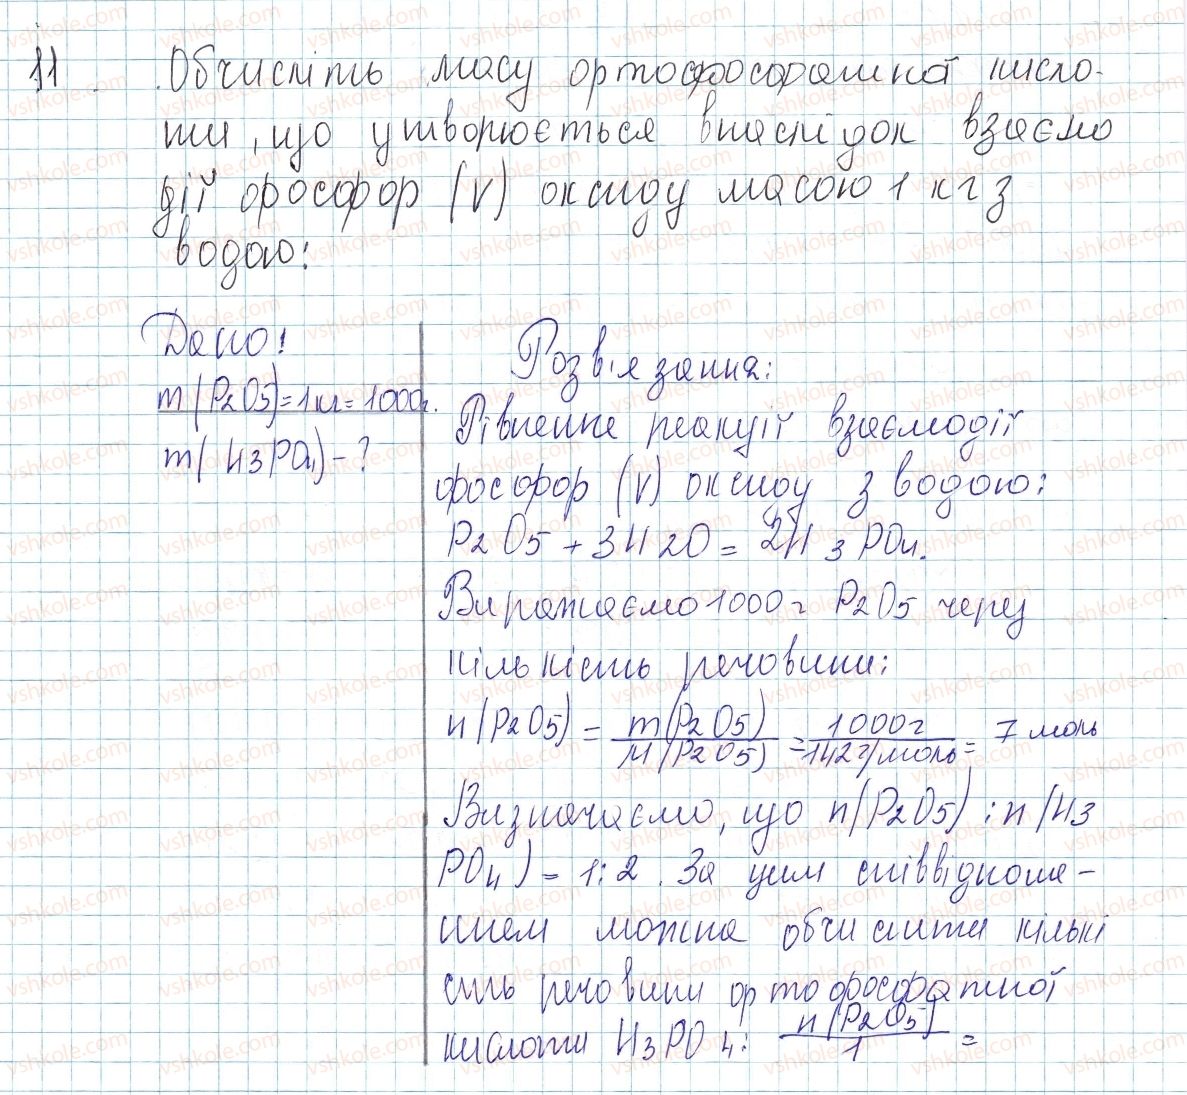 11 Обчисліть масу ортофосфатної кисло-
ти, що утворюється внаслідок взаємо
дії фосфор (V) оксиду масою 1 кг з
водою:
Дано:
m(P2O5)=1кг=1000г.
m(H3PO4)-?
Розв'язання:
Рівняння реакції взаємодії
фосфор (V) оксиду з водою:
P2O5+3H2O=2H3PO4.
Виражаємо 1000г P2O5 через
кількість речовини:
n(P2O5) = m(P2O5)/M(P2O5) = 1000г/142г/моль = 7 моль
Визначаємо, що n(P2O5):n(H3
PO4)=1:2. За цим співвідноше-
нням можна обчислити кількі
сть речовини ортофосфатної
кислоти H3PO4: n(P2O5)/1 =